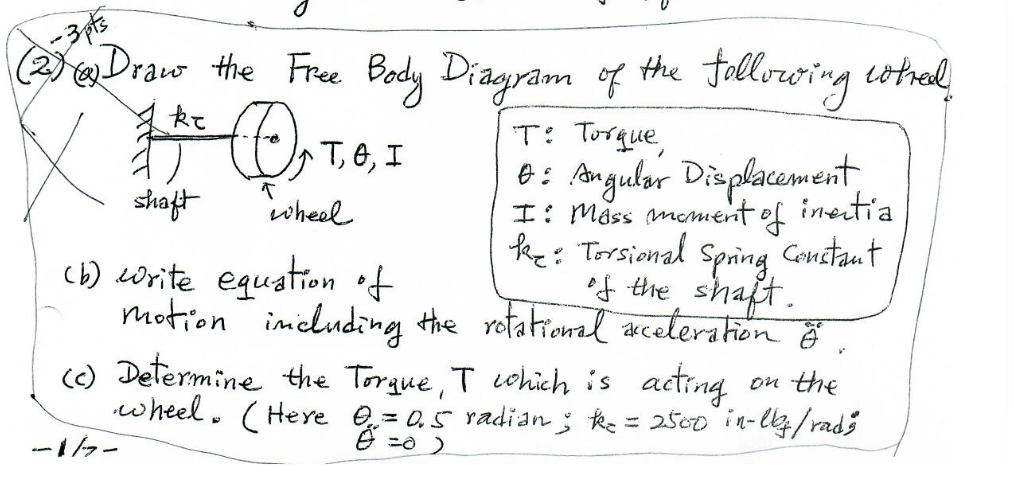 -3 pts
(2) (a) Draw the Free Body Diagram of the following wheel.
kτ
T, θ, I
shaft
wheel
T: Torque,
θ: Angular Displacement
I: Mass moment of inertia
kτ: Torsional Spring Constant
of the shaft.
(b) write equation of
motion including the rotational acceleration θ̈.
(c) Determine the Torque, T which is acting on the
wheel. (Here θ = 0.5 radian; kτ = 2500 in-lbf/rad;
θ̈ = 0)